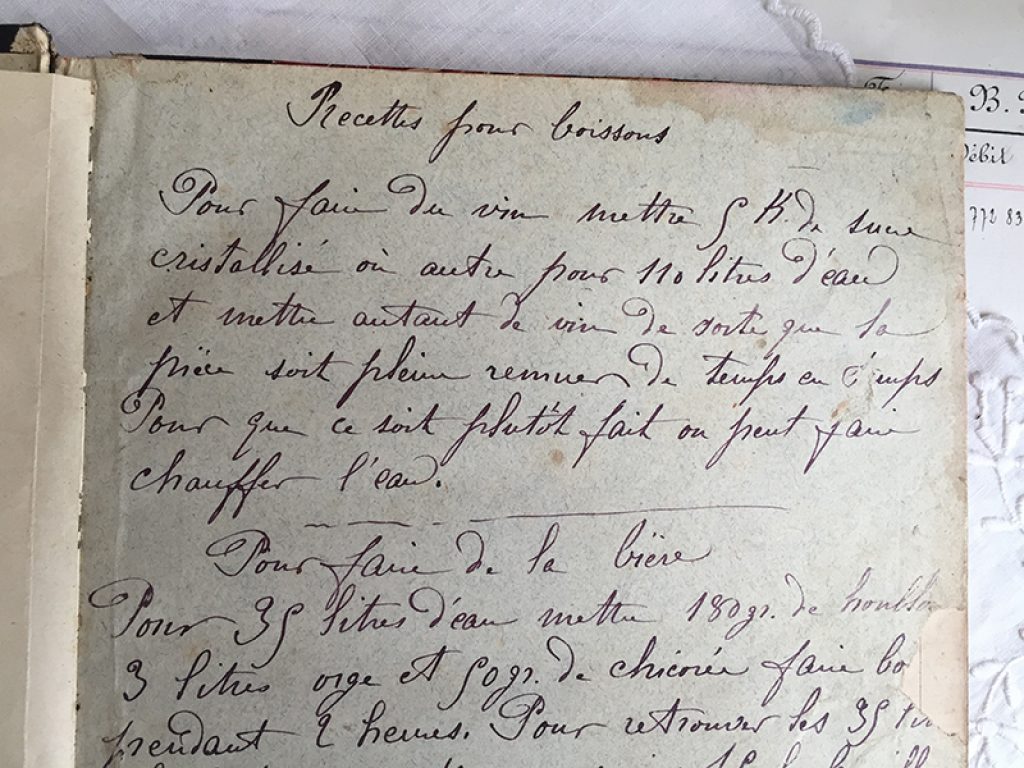 Recettes pour boissons
Pour faire du vin mettre 5 K. de sucre
cristallisé où autre pour 110 litres d'eau
et mettre autant de vin de sorte que la
pièce soit pleine remuer de temps en temps
Pour que ce soit plutôt fait on peut faire
chauffer l'eau.
Pour faire de la bière
Pour 35 litres d'eau mettre 180 gr. de houblon
3 litres orge et 50 gr. de chicorée faire bo
pendant 2 heures. Pour retrouver les 35
B.
Débit
772 83